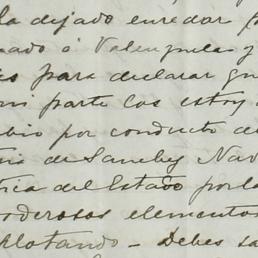 la dejado enredor
nado á Valenzuela y
para declarar qu
mi parte los estoy
bio por conducto de
de Sanchez Nav
tica del Estado por la
oderosos elementos
plotando - Debes sa